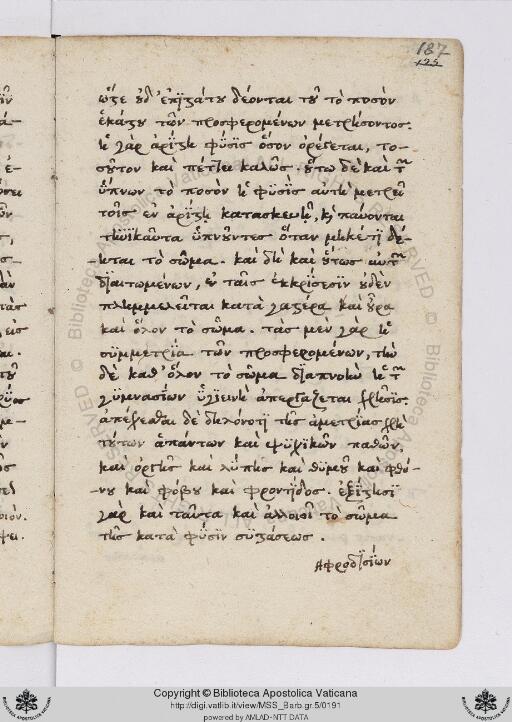 187
125
ὥστε οὐδ' ἐπιστάτου δέονται τοῦ τὸ ποσὸν
ἑκάστου τῶν προσφερομένων μετρήσοντος.
ἡ γὰρ ἀρίστη φύσις ὅσον ὀρέγεται, το-
σοῦτον καὶ πέττει καλῶς. οὕτω δὲ καὶ τῶν
ὕπνων τὸ ποσὸν ἡ φύσις αὐτὴ μετρεῖ
τοῖς ἐν ἀρίστῃ κατασκευῇ, καὶ παύονται
τηνικαῦτα ὑπνοῦντες ὅταν μηκέτι δέ-
ηται τὸ σῶμα. καὶ δὴ καὶ οὕτως αὐτῶν
διαιτωμένων, ἐν ταῖς ἐκκρίσεσιν οὐδὲν
πλημμελεῖται κατὰ γαστέρα καὶ οὖρα
καὶ ὅλον τὸ σῶμα. τὰς μὲν γὰρ ἡ
συμμετρία τῶν προσφερομένων, τὴν
δὲ καθ' ὅλον τὸ σῶμα διαπνοὴν ἡ τῶν
γυμνασίων ὑγιεινὴ ἀπεργάζεται
ἀπέχεσθαι δὲ δηλονότι τῆς ἀμετρίας χρὴ
τούτων ἁπάντων καὶ ψυχικῶν παθῶν,
καὶ ὀργῆς καὶ λύπης καὶ θυμοῦ καὶ φθό-
νου καὶ φόβου καὶ φροντίδος. ἐξίστησι
γὰρ καὶ ταῦτα καὶ ἀλλοιοῖ τὸ σῶμα
τῆς κατὰ φύσιν συστάσεως.
Ἀφροδισίων
Copyright © Biblioteca Apostolica Vaticana
http://digi.vatlib.it/view/MSS_Barb.gr.5/0191
powered by AMLAD-NTT DATA